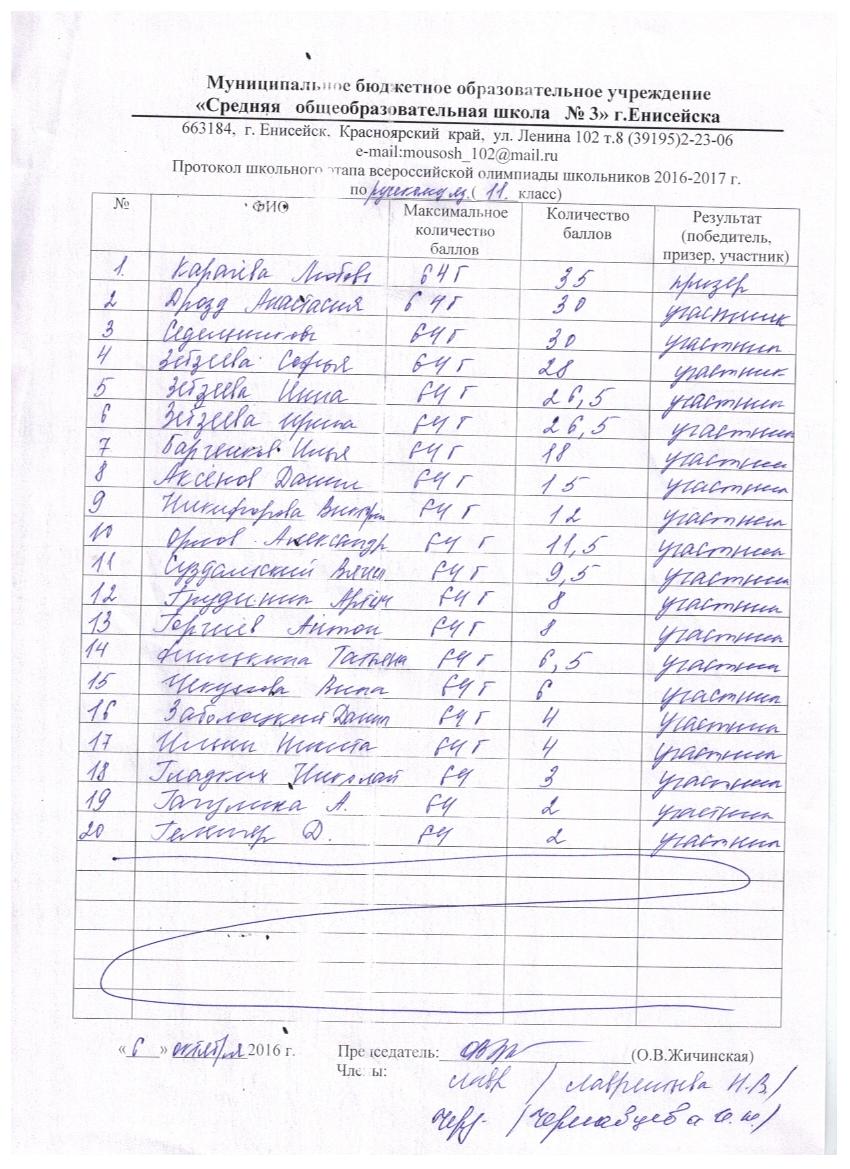 Муниципальное бюджетное образовательное учреждение
«Средняя общеобразовательная школа № 3» г.Енисейска
663184, г. Енисейск. Красноярский край, ул. Ленина 102 т.8 (39195)2-23-06
e-mail:mousosh_102@mail.ru
Протокол школьного этапа всероссийской олимпиады школьников 2016-2017 г.
по русскому яз.( 11. класс)
№ ФИО Максимальное количество баллов Количество баллов Результат (победитель, призер, участник)
1. Карачёва Любовь 64 б 35 призер
2 Дрозд Анастасия 64 б 30 участник
3 64 б 30 участник
4 Зебзеева Софья 64 б 28 участник
5 Зебзеева Инна 64 б 26,5 участник
6 Зебзеева Ирина 64 б 26,5 участник
7 Илья 64 б 18 участник
8 Аксёнов Данил 64 б 15 участник
9 Никифорова 64 б 12 участник
10 Орлов Александр 64 б 11,5 участник
11 Суздальский 64 б 9,5 участник
12 Грудинин Артём 64 б 8 участник
13 Антон 64 б 8 участник
14 Татьяна 64 б 6,5 участник
15 64 б 6 участник
16 Заболоцкий Данил 64 б 4 участник
17 Ильин Никита 64 б 4 участник
18 Гладких Николай 64 3 участник
19 А. 64 2 участник
20 Д. 64 2 участник
« 6 » октября 2016 г. Председатель: (О.В.Жичинская)
Члены: / Лаврентьева Н.В./